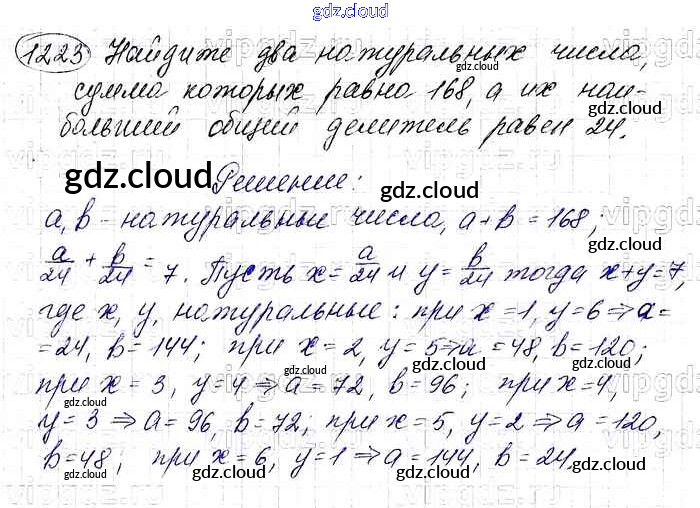 gdz.cloud
1223 Найдите два натуральных числа,
сумма которых равна 168, а их наи-
больший общий делитель равен 24.
gdz.cloud
gdz.cloud
gdz.cloud
gdz.cloud Решение: gdz.cloud
a, b - натуральные числа, a + b = 168;
a/24 + b/24 = 7. Пусть x = a/24 и y = b/24 тогда x+y=7,
где x, y, натуральные: при x = 1, y = 6 ⇒ a =
= 24, b = 144; при x = 2, y = 5 ⇒ a = 48, b = 120;
gdz.cloud gdz.cloud
при x = 3, y = 4 ⇒ a = 72, b = 96; при x = 4,
gdz.cloud
y = 3 ⇒ a = 96, b = 72; при x = 5, y = 2 ⇒ a = 120,
gdz.cloud gdz.cloud
b = 48; при x = 6, y = 1 ⇒ a = 144, b = 24.
gdz.cloud gdz.cloud gdz.cloud